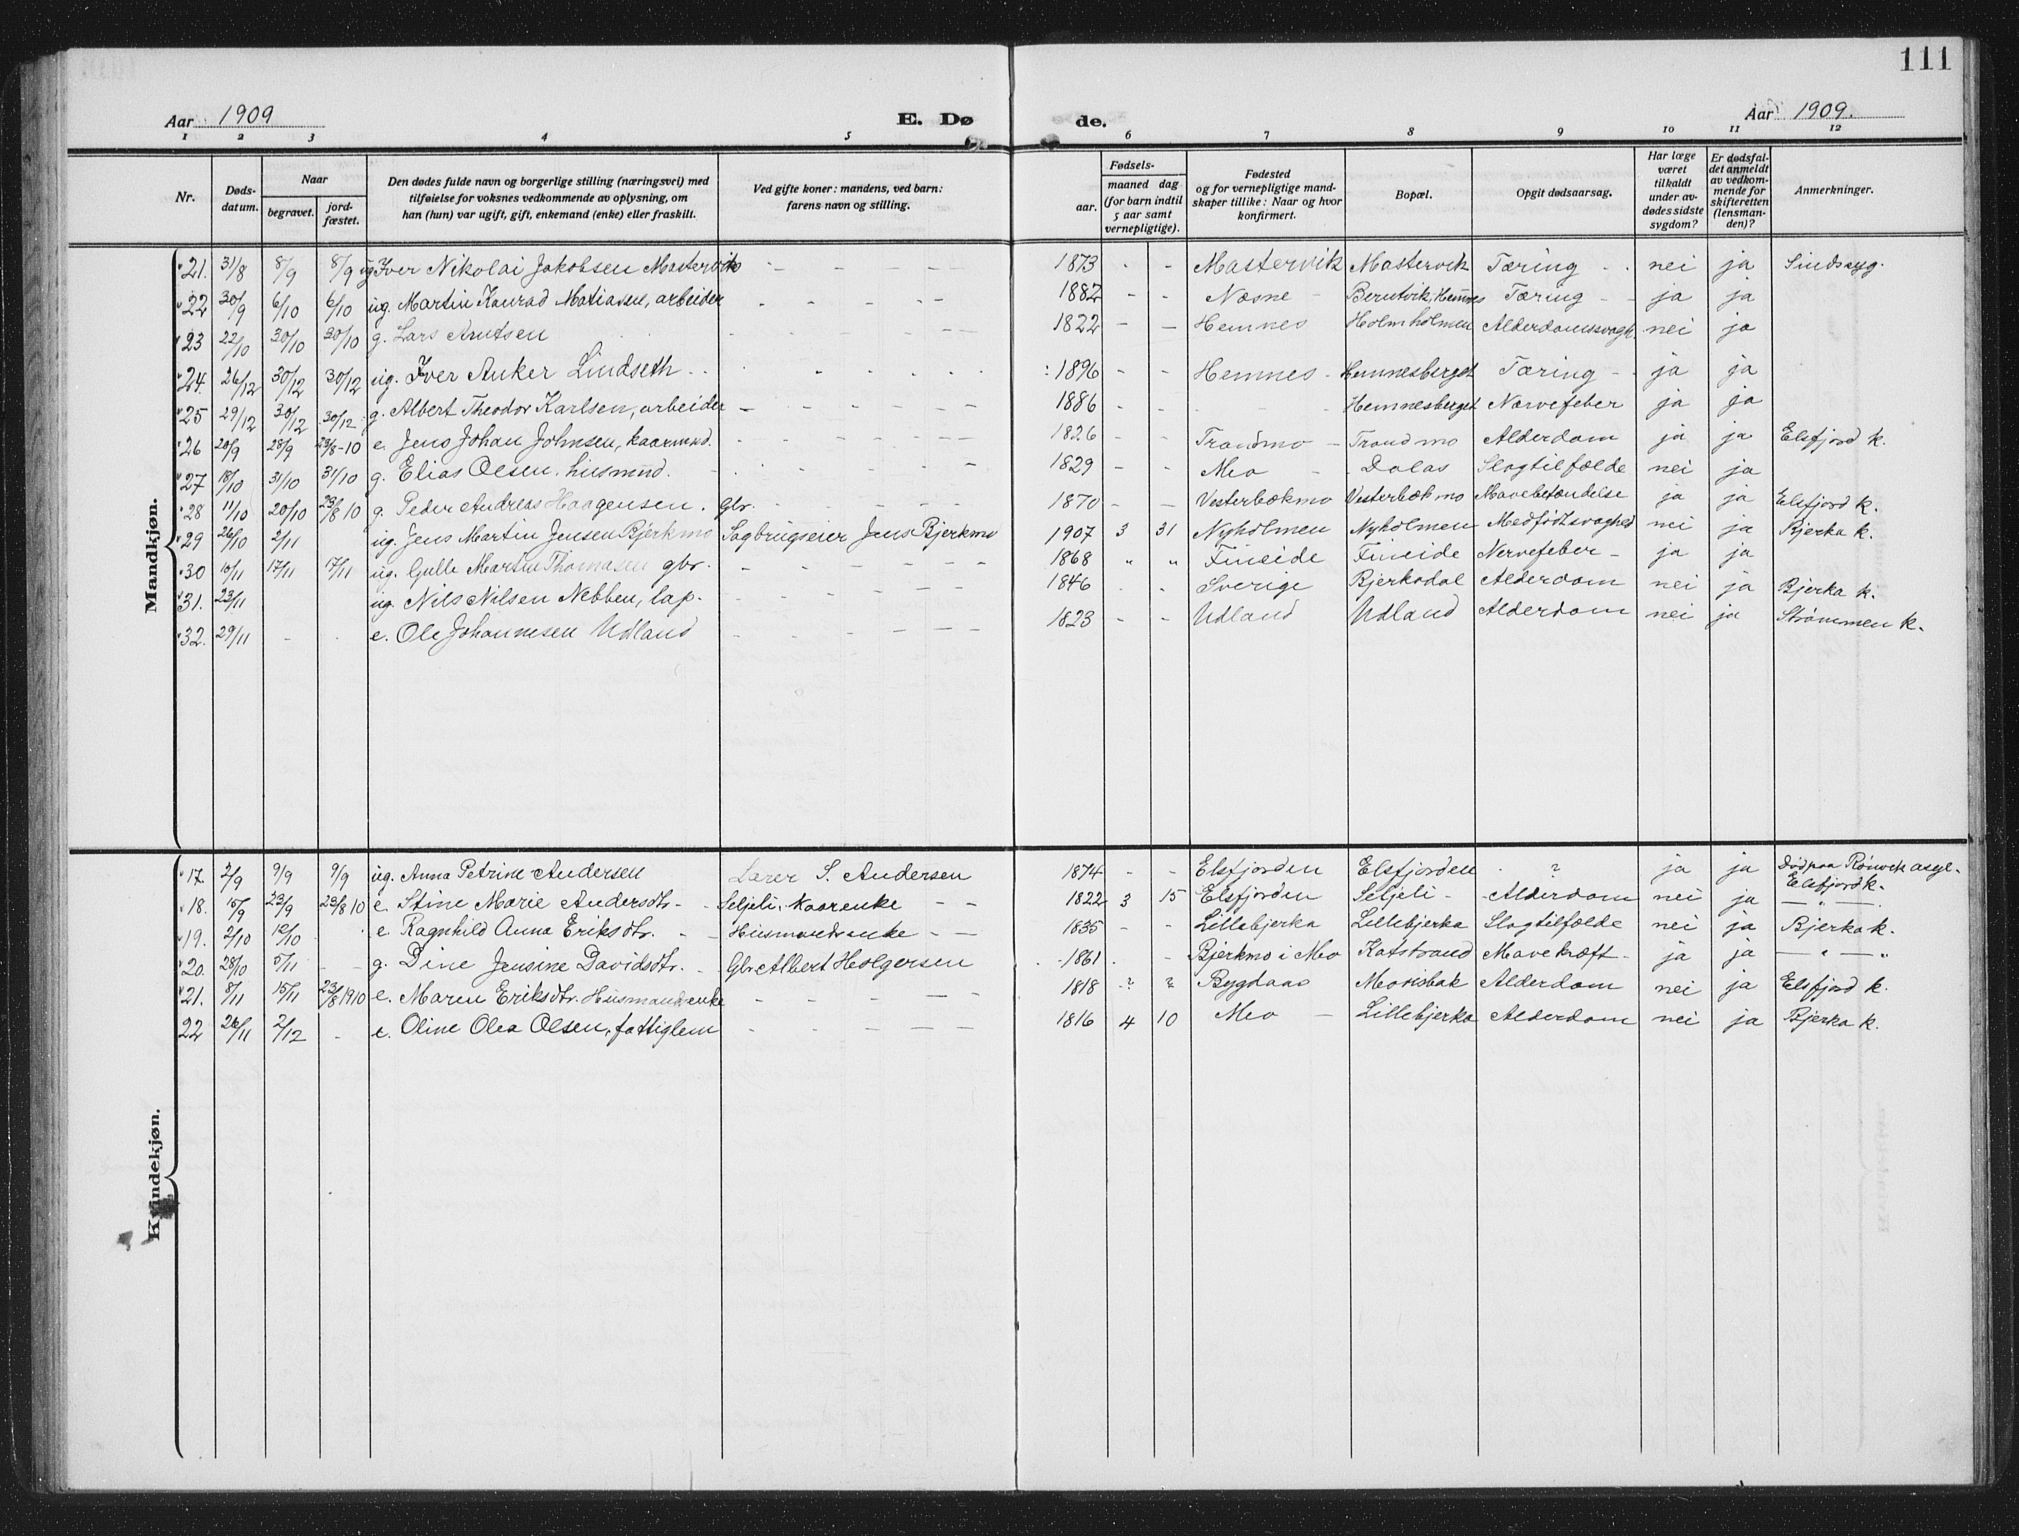 111
Aar 1909 E. Dø de. Aar 1909.
1 2 3 4 5 6 7 8 9 10 11 12
Nr. Døds-datum. Naar begravet. jord-fæstet. Den dødes fulde navn og borgerlige stilling (næringsvei) med tilføielse for voksnes vedkommende av oplysning, om han (hun) var ugift, gift, enkemand (enke) eller fraskilt. Ved gifte koner: mandens, ved barn: farens navn og stilling. Fødsels- aar. maaned dag (for barn indtil 5 aar samt vernepligtige). Fødested og for vernepligtige mand-skaper tillike: Naar og hvor konfirmert. Bopæl. Opgit dødsaarsag. Har læge været tilkaldt under av-dødes sidste sygdom? Er dødsfal-det anmeldt av vedkom-mende for skifteretten (lensman-den)? Anmerkninger.
Mandkjøn.
21. 31/8 8/9 8/9 ug Iver Nikolai Jakobsen Mastervik - - - - - 1873 - - Mastervik Mastervik Tæring - - nei ja Sindssyg.
22 30/9 6/10 6/10 ug. Martin Konrad Matiasen, arbeider - - - - - 1882 - - Næsne - Bentvik, Hemnes Tæring - - ja ja
23 22/10 30/10 30/10 g. Lars Arntsen - - - - - 1822 - - Hemnes Holmholmen Alderdomssvagh. nei ja
24. 26/12 30/12 30/12 ug. Iver Anker Lindseth - - - - - 1896 - - Hemnes - Hemnesberget Tæring - - ja ja
25 29/12 30/12 30/12 g. Albert Theodor Karlsen, arbeider - - - - - 1886 - - - - Hemnesberget Nervefeber ja ja
26 20/9 28/9 23/8-10 e. Jens Johan Johnsen, kaarmnd. - - - - - 1826 - - Trandmo - Trandmo Alderdom ja ja Elsfjord k.
27 18/10 31/10 31/10 g. Elias Olsen, husmnd. - - - - - 1829 - - Mo - Dalas Slagtilfælde nei ja
28 11/10 20/10 23/8 10 g. Peder Andreas Haagensen. Gbr. - - - - 1870 - - Vesterbækmo Vesterbækmo Mavebetændelse ja ja Elsfjord k.
29 26/10 2/11 ug. Jens Martin Jensen Bjerkmo Sagbrugseier Jens Bjerkmo 1907 3 31 Nyholmen Nyholmen Medfødt svaghed nei ja Bjerka k.
30 10/11 17/11 17/11 ug. Gulle Martin Thomasen gbr. - - - - - 1868 " " Fineide Fineide Nervefeber - ja ja
31. 23/11 ug. Nils Nilsen Nebben, lap. - - - - - 1846 - - Sverige Bjerkadal Alderdom nei ja Bjerka k.
32. 29/11 - - e. Ole Johannesen Udland - - - - - 1823 - - Udland Udland Alderdom nei ja Strømmen k.
Kvindekjøn.
17. 2/9 9/9 9/9 ug. Anna Petrine Andersen Lærer S. Andersen 1874 - - Elsfjorden Elsfjorden - ? ja ja Død paa Rønvik asyl. Elsfjord k.
18. 15/9 23/9 23/8 10 e. Stine Marie Andersdtr. - - Seljeli. Kaarenke - - 1822 3 15 Elsfjorden Seljeli - Alderdom nei ja - " -
19. 2/10 12/10 - - e. Ragnhild Anna Eriksdtr. - - Husmandsenke - - 1835 - - Lillebjerka Lillebjerka Slagtilfælde nei ja Bjerka k.
20. 28/10 5/11 - - g. Dine Jensine Davidsdtr. - Gbr. Albert Holgersen 1861 - - Bjerkmo i Mo Katstrand Mavekræft - ja ja - " - "
21. 8/11 15/11 23/8 1910 e. Maren Eriksdtr. Husmandsenke - - - - - 1818 ? ? Bygdaas Morisbak Alderdom nei ja Elsfjord k.
22 26/11 2/12 - e. Oline Olea Olsen, fattiglem - - - - - 1816 4 10 Mo - Lillebjerka Alderdom nei ja Bjerka k.